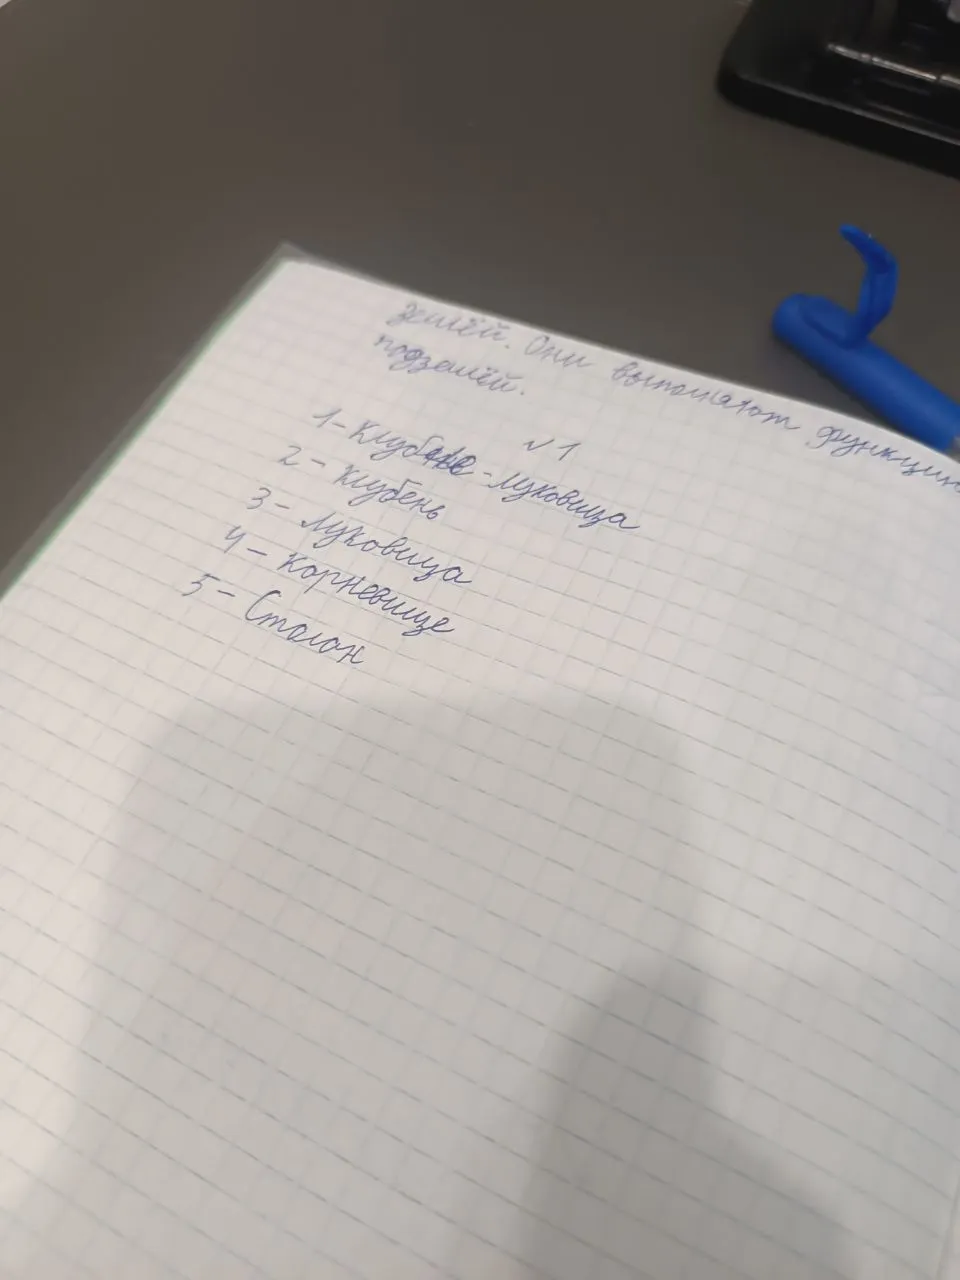 землёй. Они выполняют функцию
подземлёй.
√ 1
1 - Клубне - луковица
2 - Клубень
3 - Луковица
4 - Корневище
5 - Столон